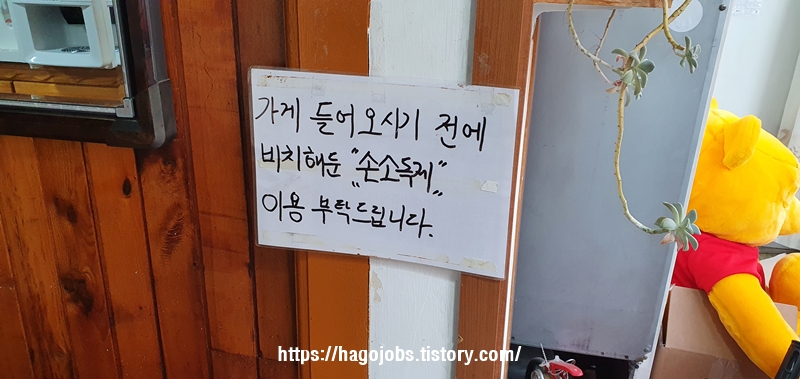 가게 들어오시기 전에
비치해둔 "손소독제"
이용 부탁드립니다.
https://hagojobs.tistory.com/